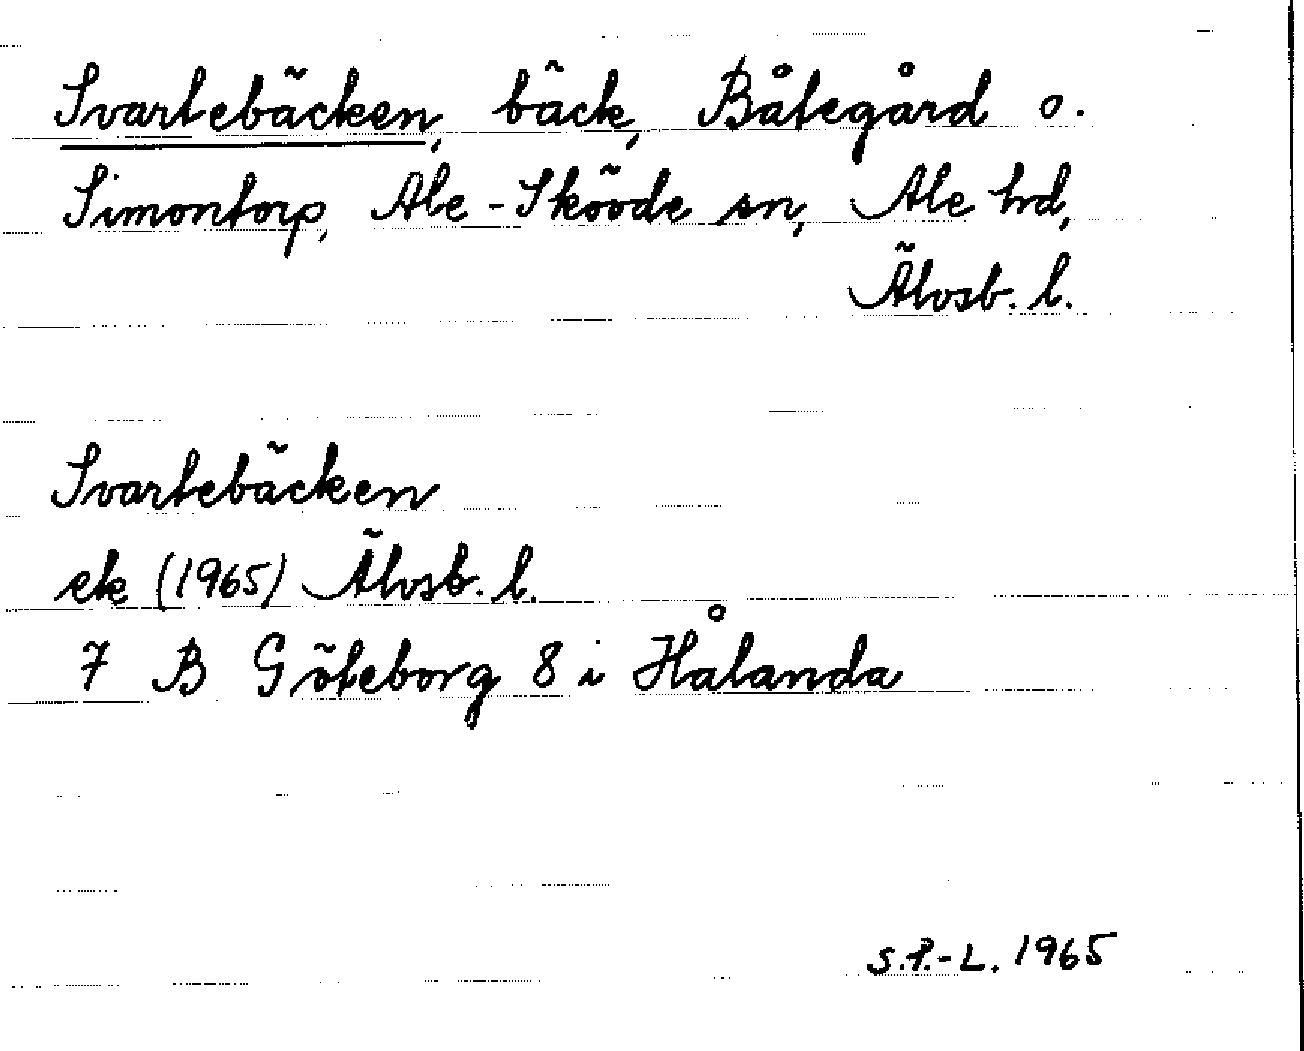 Svartebäcken, bäck, Båtegård o.
Simontorp, Ale-Skövde sn, Ale hrd,
Älvsb. l.
Svartebäcken
ek (1965) Älvsb. l.
7 B Göteborg 8 i Hålanda
S.P.-L. 1965